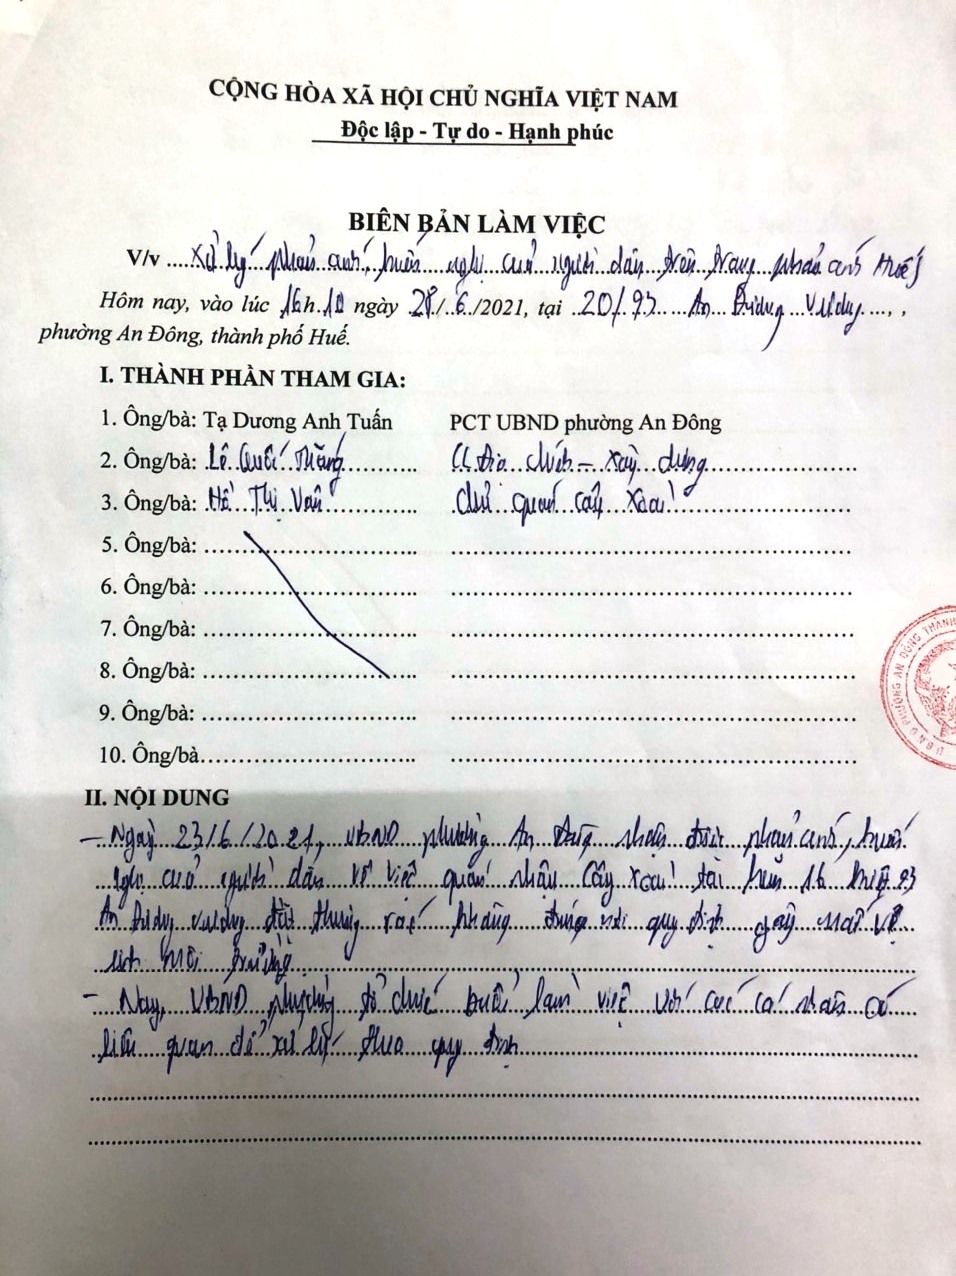 CỘNG HÒA XÃ HỘI CHỦ NGHĨA VIỆT NAM
Độc lập - Tự do - Hạnh phúc
BIÊN BẢN LÀM VIỆC
V/v ....Xử lý phản ánh, kiến nghị của người dân trên trang phản ánh Huế S
Hôm nay, vào lúc 16h.10 ngày 28./..6../2021, tại ..20/.93....An Dương Vương...., ,
phường An Đông, thành phố Huế.
I. THÀNH PHẦN THAM GIA:
1. Ông/bà: Tạ Dương Anh Tuấn PCT UBND phường An Đông
2. Ông/bà: Lê Quốc Thắng............ CC Địa chính – Xây dựng..........................
3. Ông/bà: Hồ Thị Vân ............... Chủ quán cây xoài..............................
5. Ông/bà: ....................................... ..........................................................................
6. Ông/bà: ....................................... ..........................................................................
7. Ông/bà: ....................................... ..........................................................................
8. Ông/bà: ....................................... ..........................................................................
9. Ông/bà: ....................................... ..........................................................................
10. Ông/bà....................................... ..........................................................................
U.B.N.D PHƯỜNG AN ĐÔNG THÀNH
II. NỘI DUNG
– Ngày 23/6/2021, UBND phường An Đông nhận được phản ánh, kiến
nghị của người dân về việc quán nhậu Cây Xoài tại hẻm 16 kiệt 93
An Dương Vương đặt thùng rác không đúng nơi quy định gây mất vệ
sinh môi trường.
– Nay, UBND phường tổ chức buổi làm việc với các cá nhân có
liên quan để xử lý theo quy định